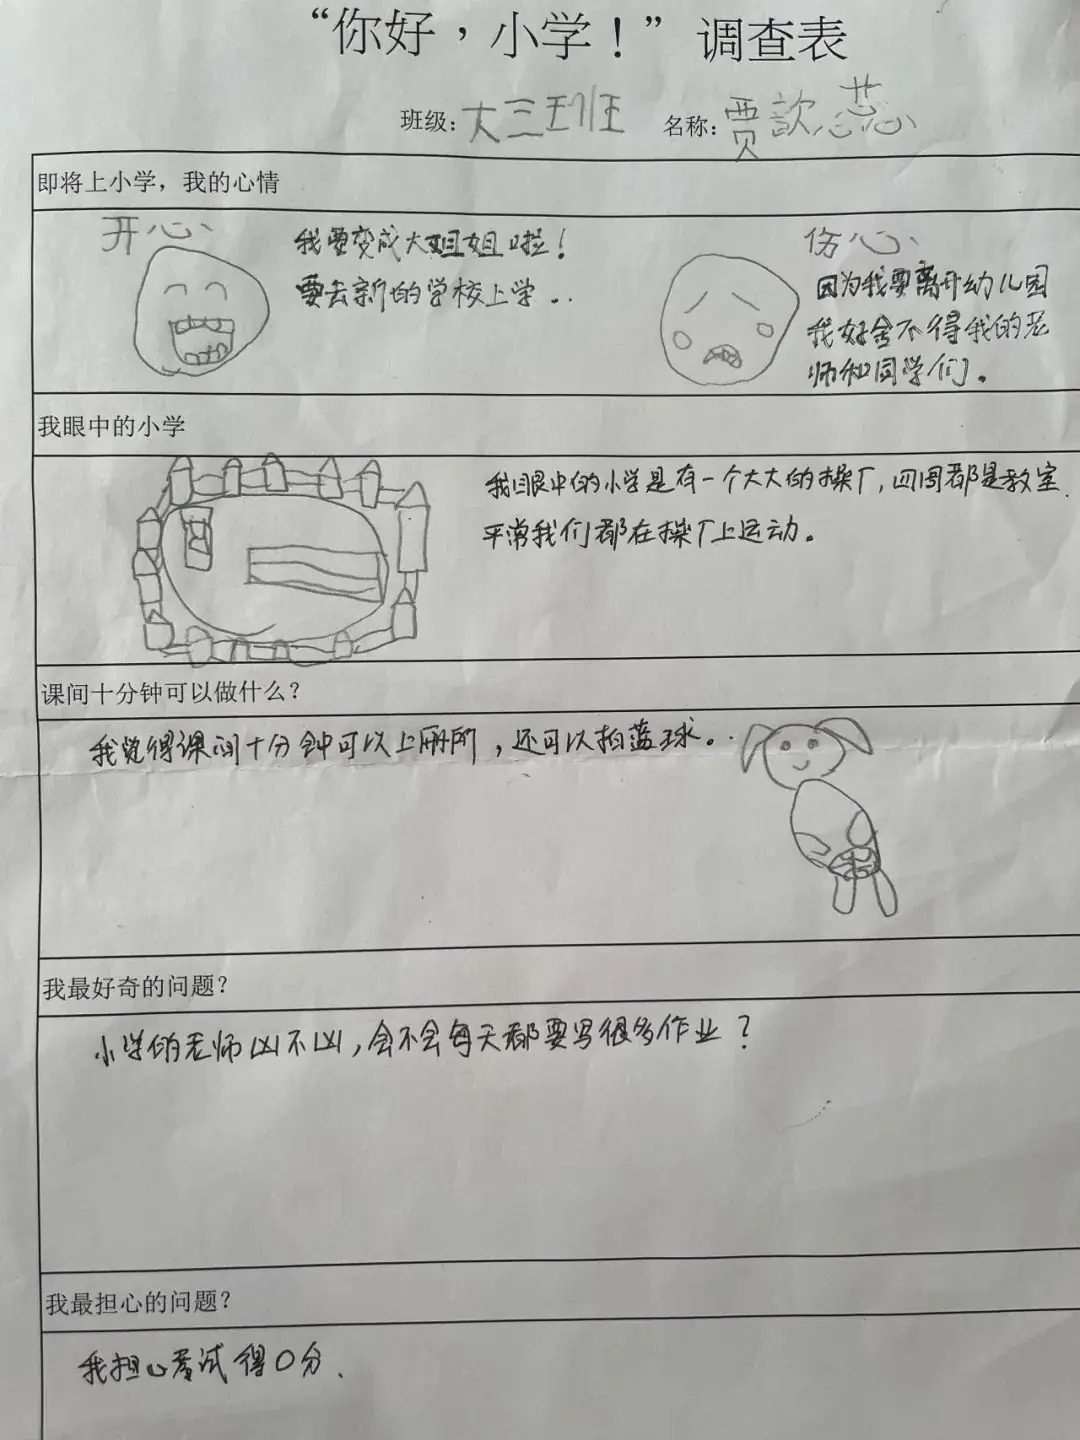 “你好，小学！”调查表
班级：大三班 名称：贾歆蕊
即将上小学，我的心情
开心
我要变成大姐姐啦！
要去新的学校上学..
伤心
因为我要离开幼儿园
我好舍不得我的老
师和同学们。
我眼中的小学
我眼中的小学是有一个大大的操厂，四周都是教室.
平常我们都在操厂上运动。
课间十分钟可以做什么？
我觉得课间十分钟可以上厕所，还可以拍篮球。
我最好奇的问题？
小学的老师凶不凶，会不会每天都要写很多作业？
我最担心的问题？
我担心考试得0分.